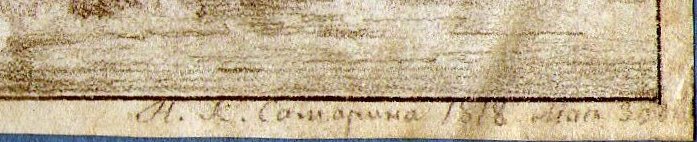 Н. К. Самарина 1878 мая 30